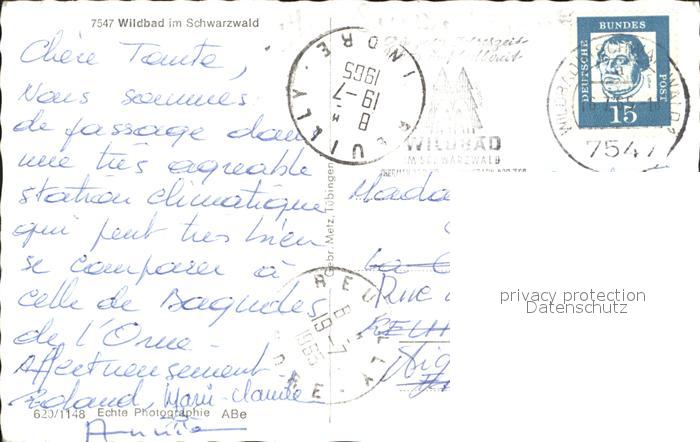 7547 Wildbad im Schwarzwald
Chère Tante,
Nous sommes
de passage dans
une très agréable
station climatique
qui peut très bien
se comparer à
celle de Bagnoles
de l'Orne.
Affectueusement
Roland, Marie-Claude
620/1148 Echte Photographie ABe
Gebr. Metz, Tübingen
REUILLY INDRE
8 H
19-7
1965
WILDBAD
IM SCHWARZWALD
DEUTSCHE BUNDES POST
15
7547
Mada
La
Rue
REUI
REUILLY INDRE
8 H
19-7
1965
privacy protection
Datenschutz